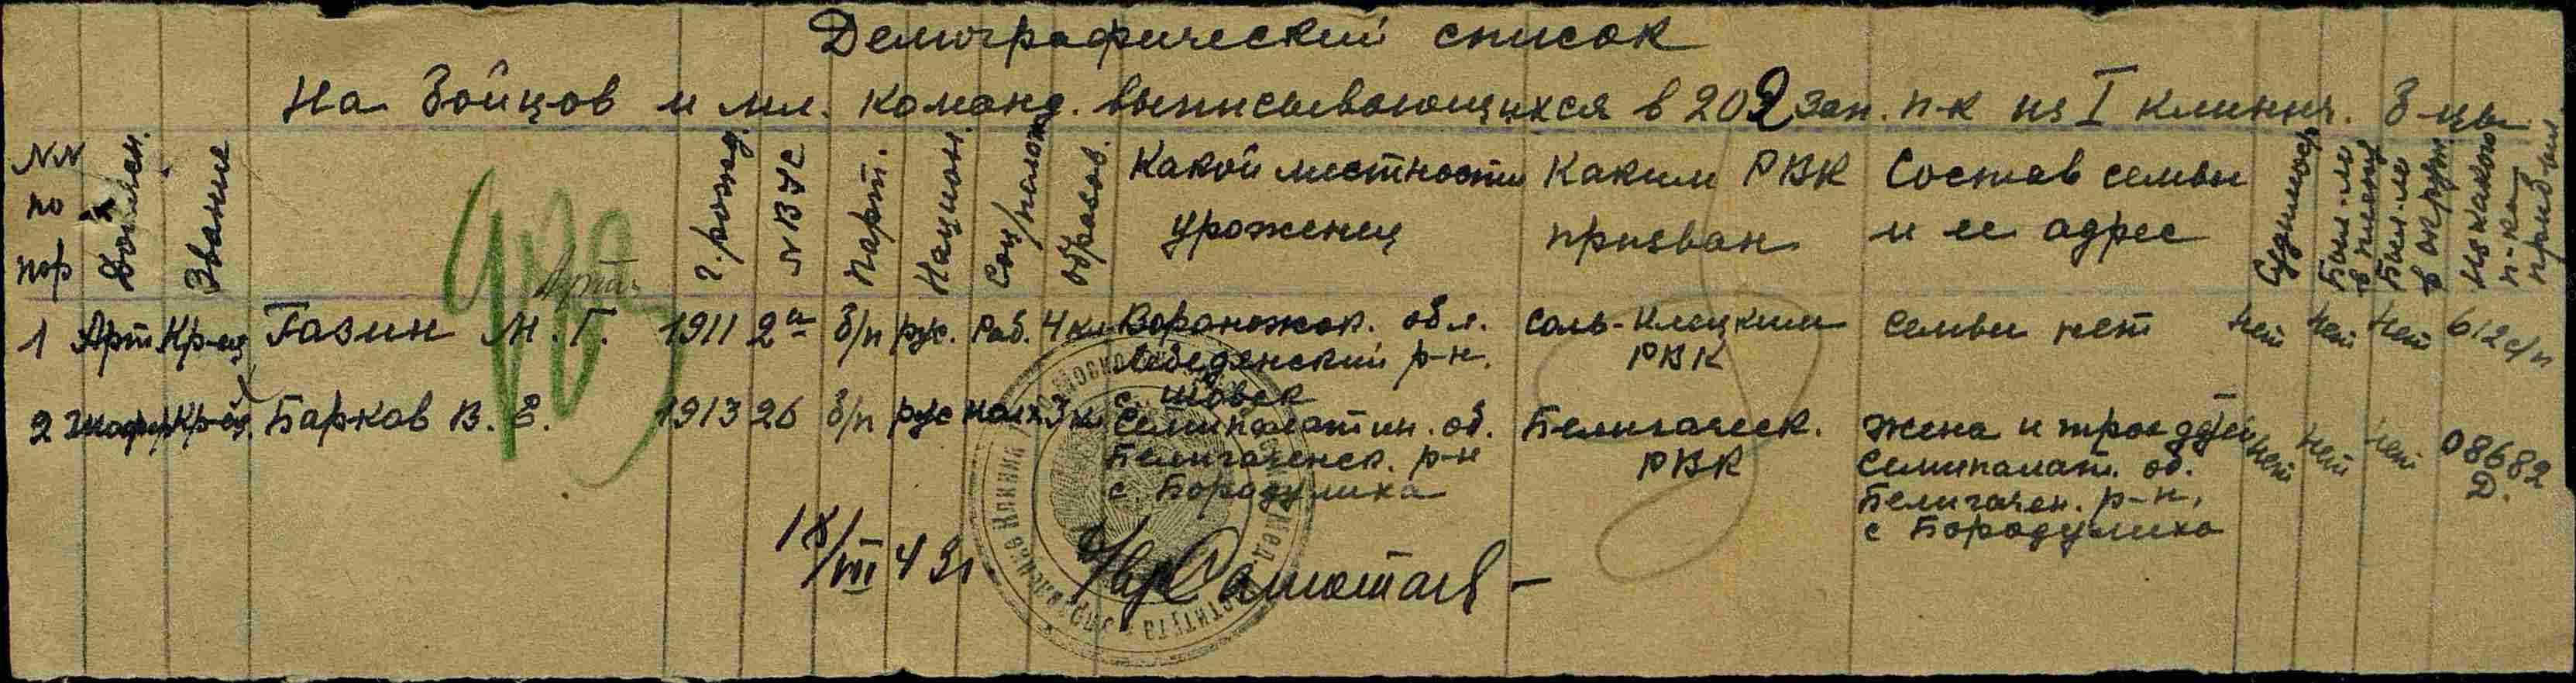 Демографический список
На бойцов и мл. команд. выписывающихся в 202 зап. п-к из I клинич. б-цы
NN по пор
Должен.
Звание
г. рожд.
N ВУС
Парт.
Национ.
Соц/полож
образов.
Какой местности урожениц
Каким РВК призван
Состав семьи и ее адрес
Судимость
Был-ли в плену
Был-ли в окруж.
Из какого п-ка прибыл
Арт.
1 Арт Кр-ец Газин М. Г. 1911 2а б/п рус. раб. 4 кл Воронежск. обл. Соль-Илецким семьи нет нет нет нет 612 с/п
Лебедянский р-н. РВК
с. Шовск
2 Шофер Кр-ец. Барков В. Е. 1913 26 б/п рус колх 3 кл Семипалатин. об. Белигачск. Жена и трое детей нет нет нет 08682
Белигаченск. р-н РВК Семипалат. об. Д.
с. Бородулиха Белигачен. р-н,
с Бородулиха
18/VIII 43г
Самотаев